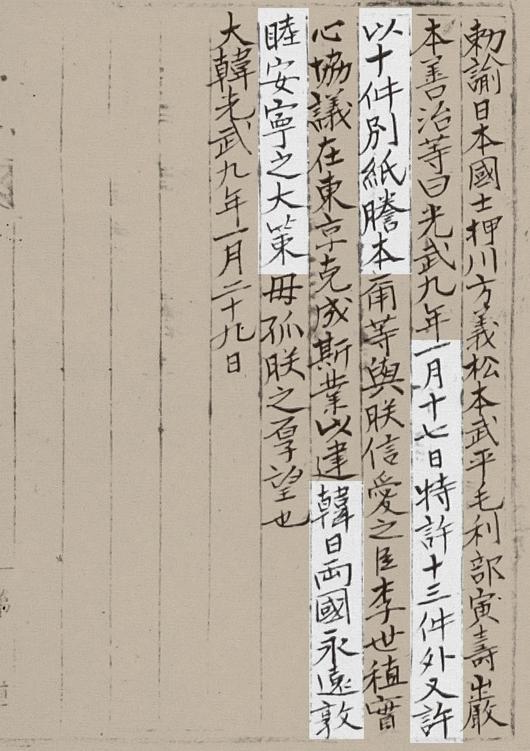 勅諭日本國士押川方義松本武平毛利部寅壽出嚴
本善治等曰光武九年一月十七日特許十三件外又許
以十件別紙謄本甭等與朕信愛之臣李世稙實
心協議在東京克成斯業以建韓日両國永遠敦
睦安寧之大策毋孤朕之厚望也
大韓光武九年一月二十九日